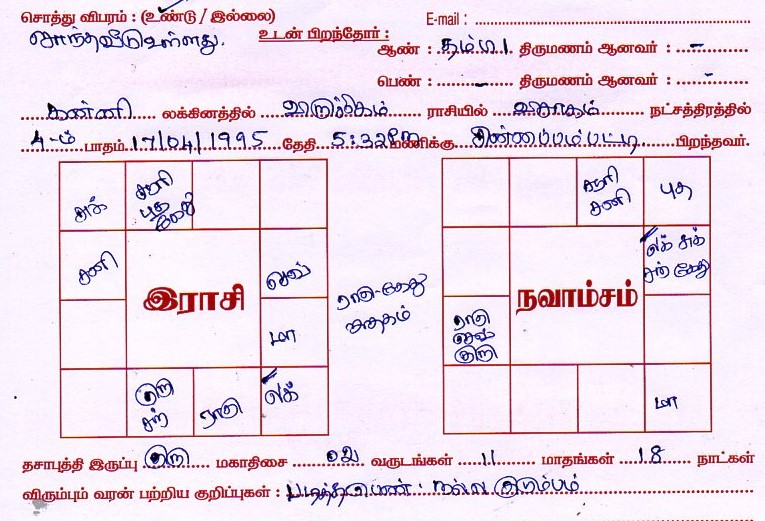 சொத்து விபரம் : (உண்டு / இல்லை) E-mail :
சொந்தவீடு உள்ளது. உடன் பிறந்தோர் :
ஆண் : தம்பி 1 திருமணம் ஆனவர் : -
பெண் : - திருமணம் ஆனவர் : -
கன்னி லக்கினத்தில் விருச்சிகம் ராசியில் விசாகம் நட்சத்திரத்தில்
4-ம் பாதம் 17/04/1995 தேதி 5:32 PM மணிக்கு பிறந்தவர்.
சுக்
சூரி
புத
சனி
இராசி
செவ்
மா
குரு
சந்
ராகு
லக்
ராகு-கேது
ஜாதகம்
சூரி
சனி
புத
லக் சுக்
சந் கேது
நவாம்சம்
ராகு
செவ்
குரு
மா
தசாபுத்தி இருப்பு குரு மகாதிசை 02 வருடங்கள் 11 மாதங்கள் 18 நாட்கள்
விரும்பும் வரன் பற்றிய குறிப்புகள் : படித்த பெண் : நல்ல குடும்பம்